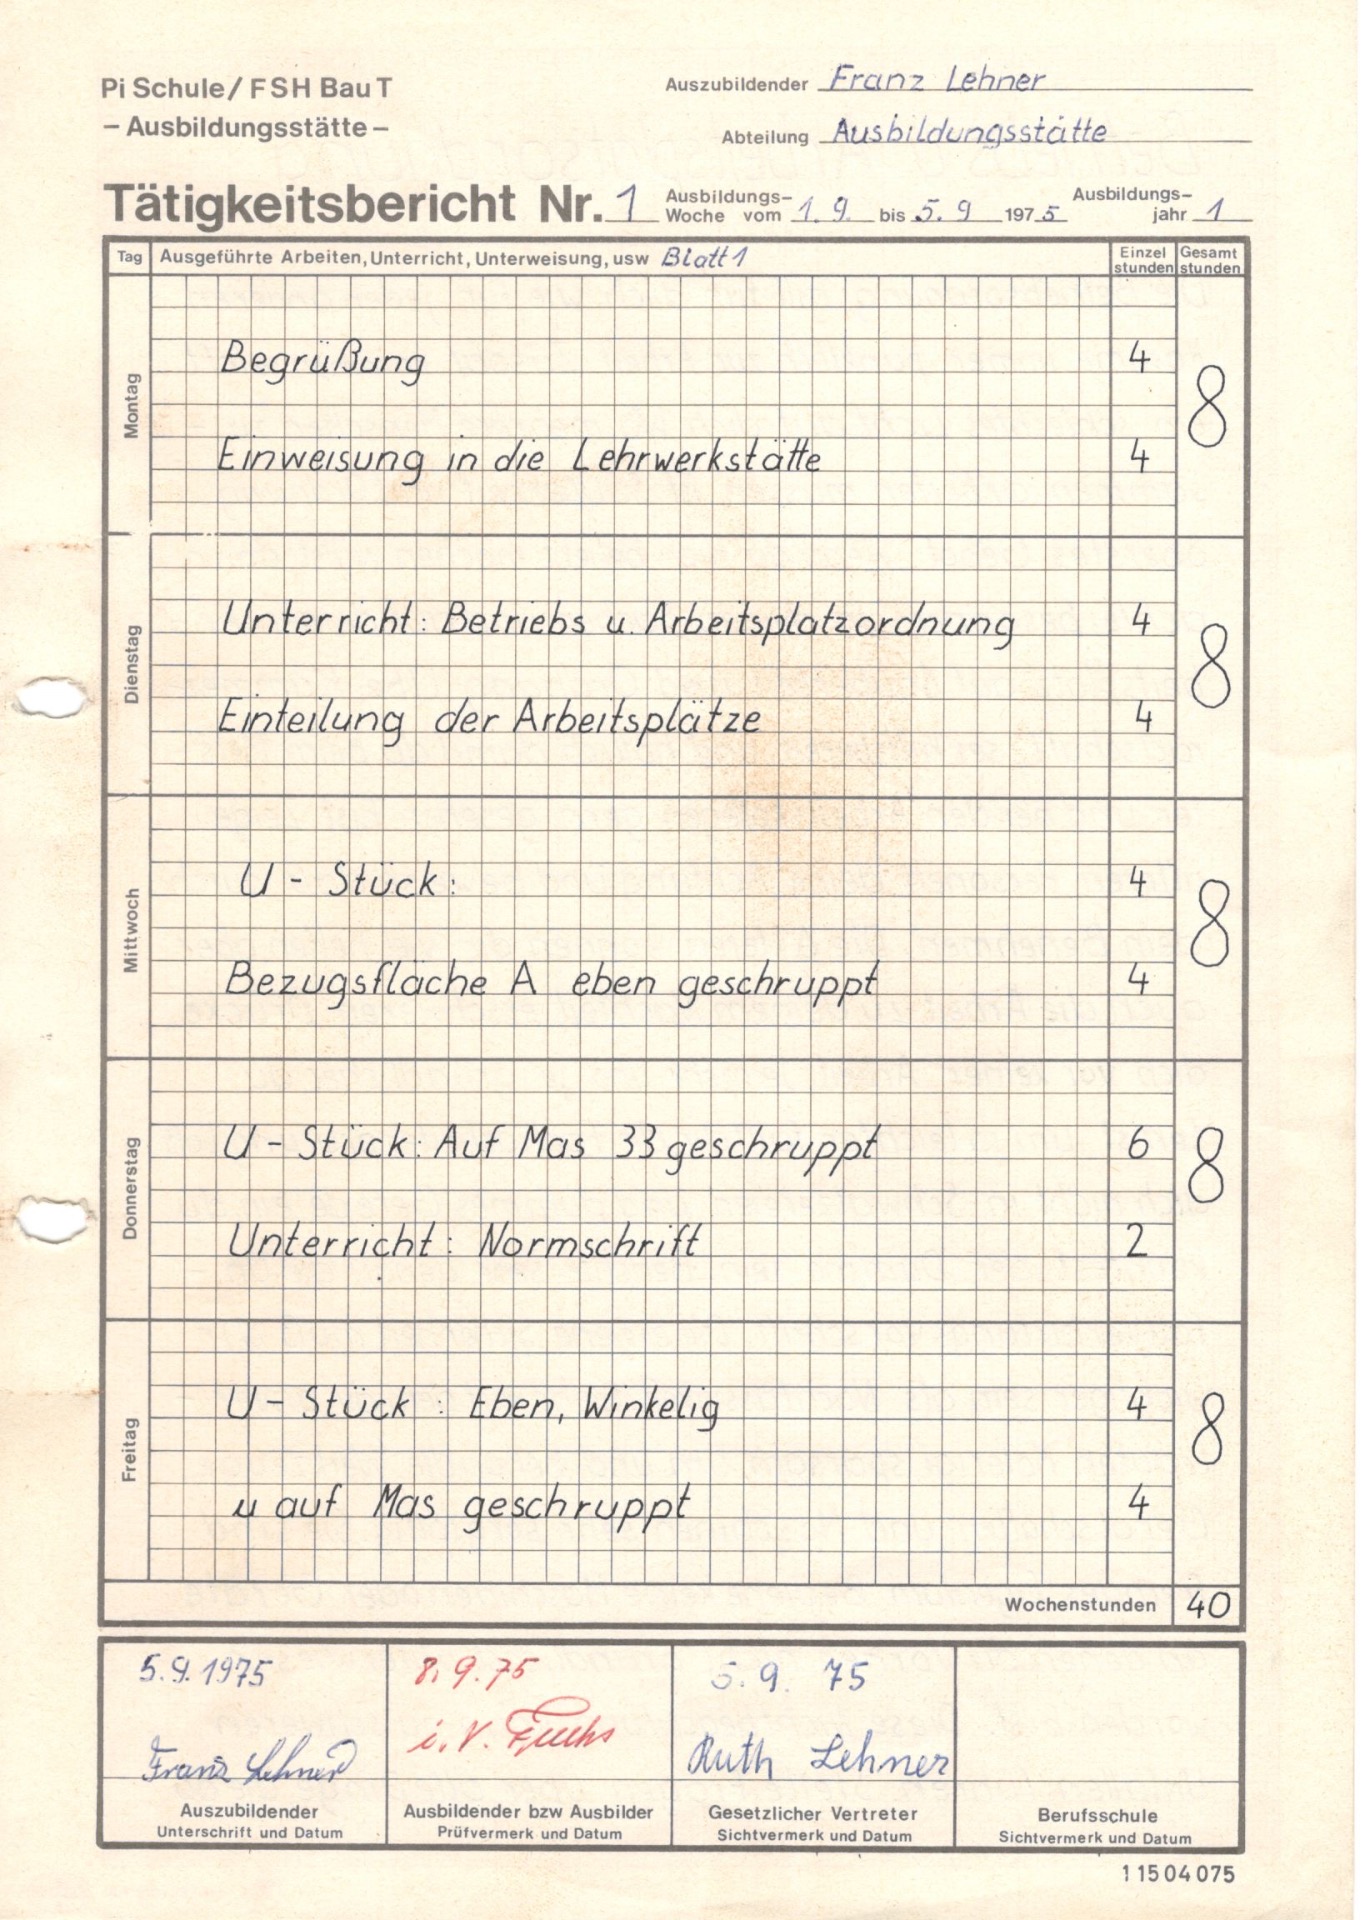 Pi Schule/FSH Bau T
– Ausbildungsstätte –
Auszubildender Franz Lehner
Abteilung Ausbildungsstätte
Tätigkeitsbericht Nr. 1
Ausbildungs–
Woche vom 1.9. bis 5.9 1975
Ausbildungs–
jahr 1
Tag Ausgeführte Arbeiten, Unterricht, Unterweisung, usw Blatt 1 Einzel stunden Gesamt stunden
Montag
Begrüßung 4
8
Einweisung in die Lehrwerkstätte 4
Dienstag
Unterricht: Betriebs u. Arbeitsplatzordnung 4
8
Einteilung der Arbeitsplätze 4
Mittwoch
U - Stück: 4
8
Bezugsfläche A eben geschruppt 4
Donnerstag
U - Stück: Auf Mas 33 geschruppt 6
8
Unterricht: Normschrift 2
Freitag
U - Stück : Eben, Winkelig 4
8
u auf Mas geschruppt 4
Wochenstunden 40
5.9.1975
Franz Lehner
Auszubildender
Unterschrift und Datum
8.9.75
i.V. Fuchs
Ausbildender bzw Ausbilder
Prüfvermerk und Datum
5.9. 75
Ruth Lehner
Gesetzlicher Vertreter
Sichtvermerk und Datum
Berufsschule
Sichtvermerk und Datum
11504075